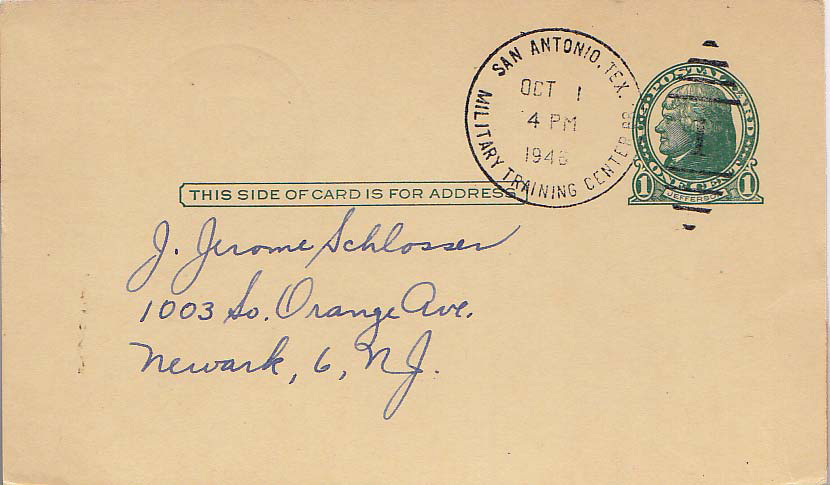 SAN ANTONIO, TEX.
MILITARY TRAINING CENTER BR.
OCT 1
4 PM
1946
U.S. POSTAL CARD
1 ONE CENT 1
JEFFERSON
THIS SIDE OF CARD IS FOR ADDRESS
J. Jerome Schlosser
1003 So. Orange Ave.
Newark, 6, N.J.